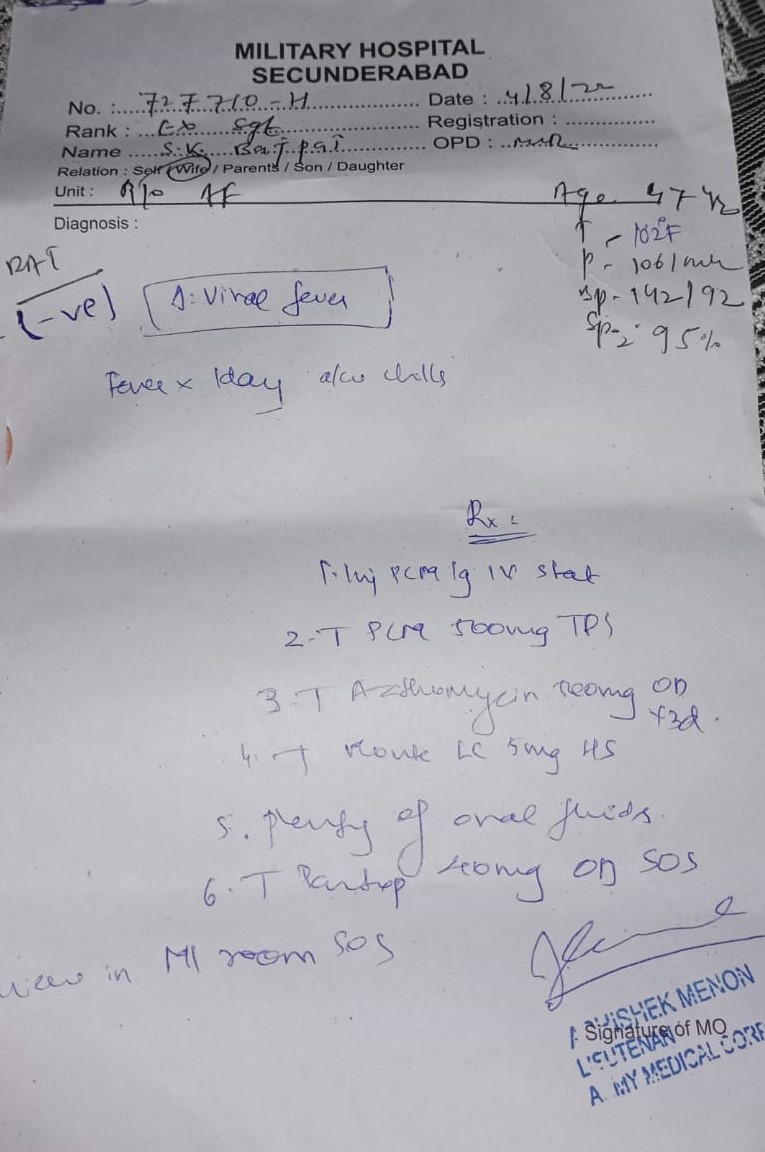 MILITARY HOSPITAL
SECUNDERABAD
No. : 727710-H Date : 4/8/22
Rank : Ex Sgt Registration :
Name S.K. Bajpai OPD :
Relation : Self / Wife / Parents / Son / Daughter
Unit : R/o AF Age 47 yr
Diagnosis :
T - 102°F
P - 106/min
BP - 142/92
SpO2: 95%
RAT
(-ve)
Δ: Viral fever
Fever x 1day a/w chills
Rx :
1. Inj PCM 1g IV stat
2. T PCM 500mg TDS
3. T Azithromycin 500mg OD
x3d.
4. T Monte LC 5mg HS
5. Plenty of oral fluids.
6. T Pantop 40mg OD SOS
in MI room SOS
ABHISHEK MENON
Signature of MO
LIEUTENANT
ARMY MEDICAL CORP